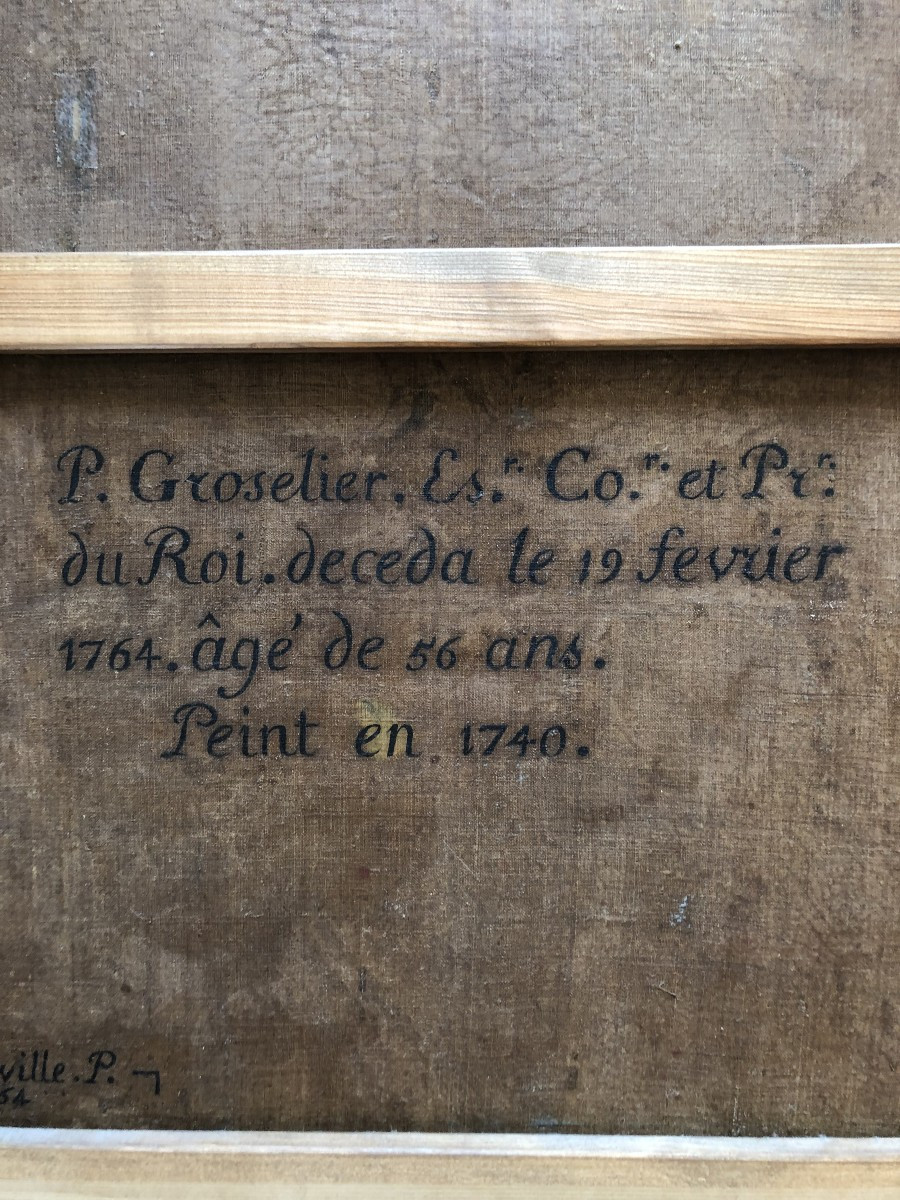 P. Groselier. Es.r. Co.r. et Pr.r.
du Roi. deceda le 19 fevrier
1764. âgé de 56 ans.
Peint en 1740.
ville. P.